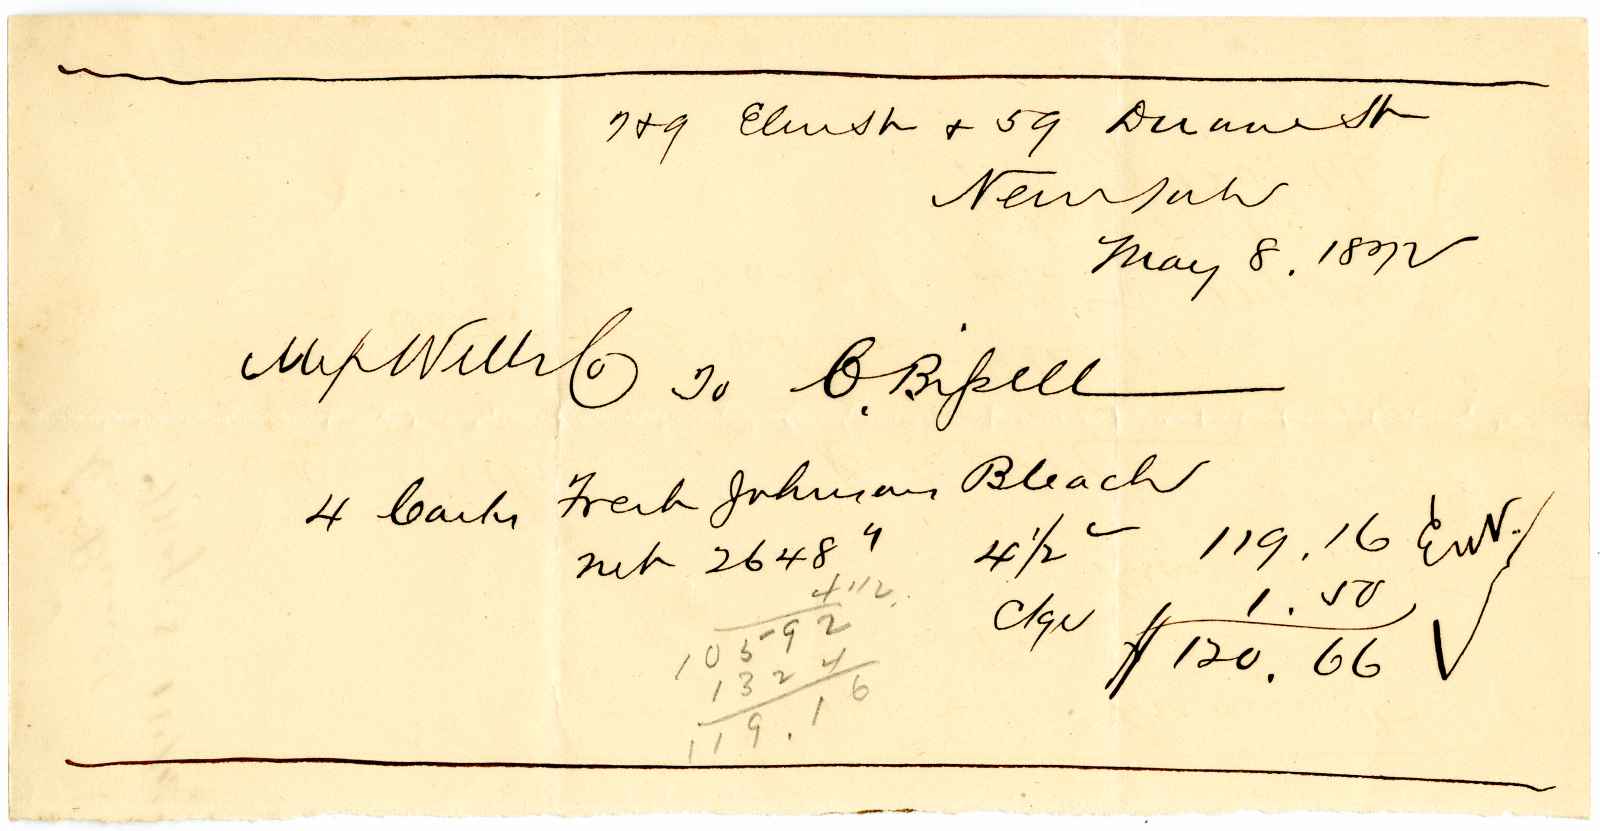 7 & 9 Elm St & 59 Duane St
New York
May 8. 1872
Mess Wells & Co To C. Bissell
4 Casks Fresh Johnson Bleach
net 2648 " 4 1/2 c 119.16
4 1/2
Chgs 1.50
10592
$120.66
1324
119.16